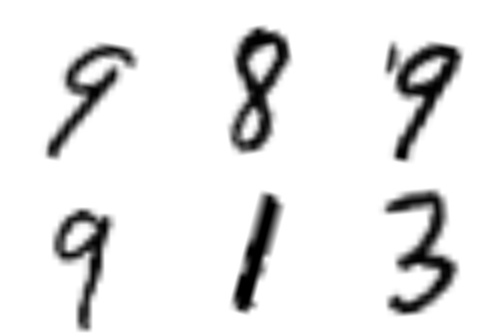 9 8 9
9 1 3